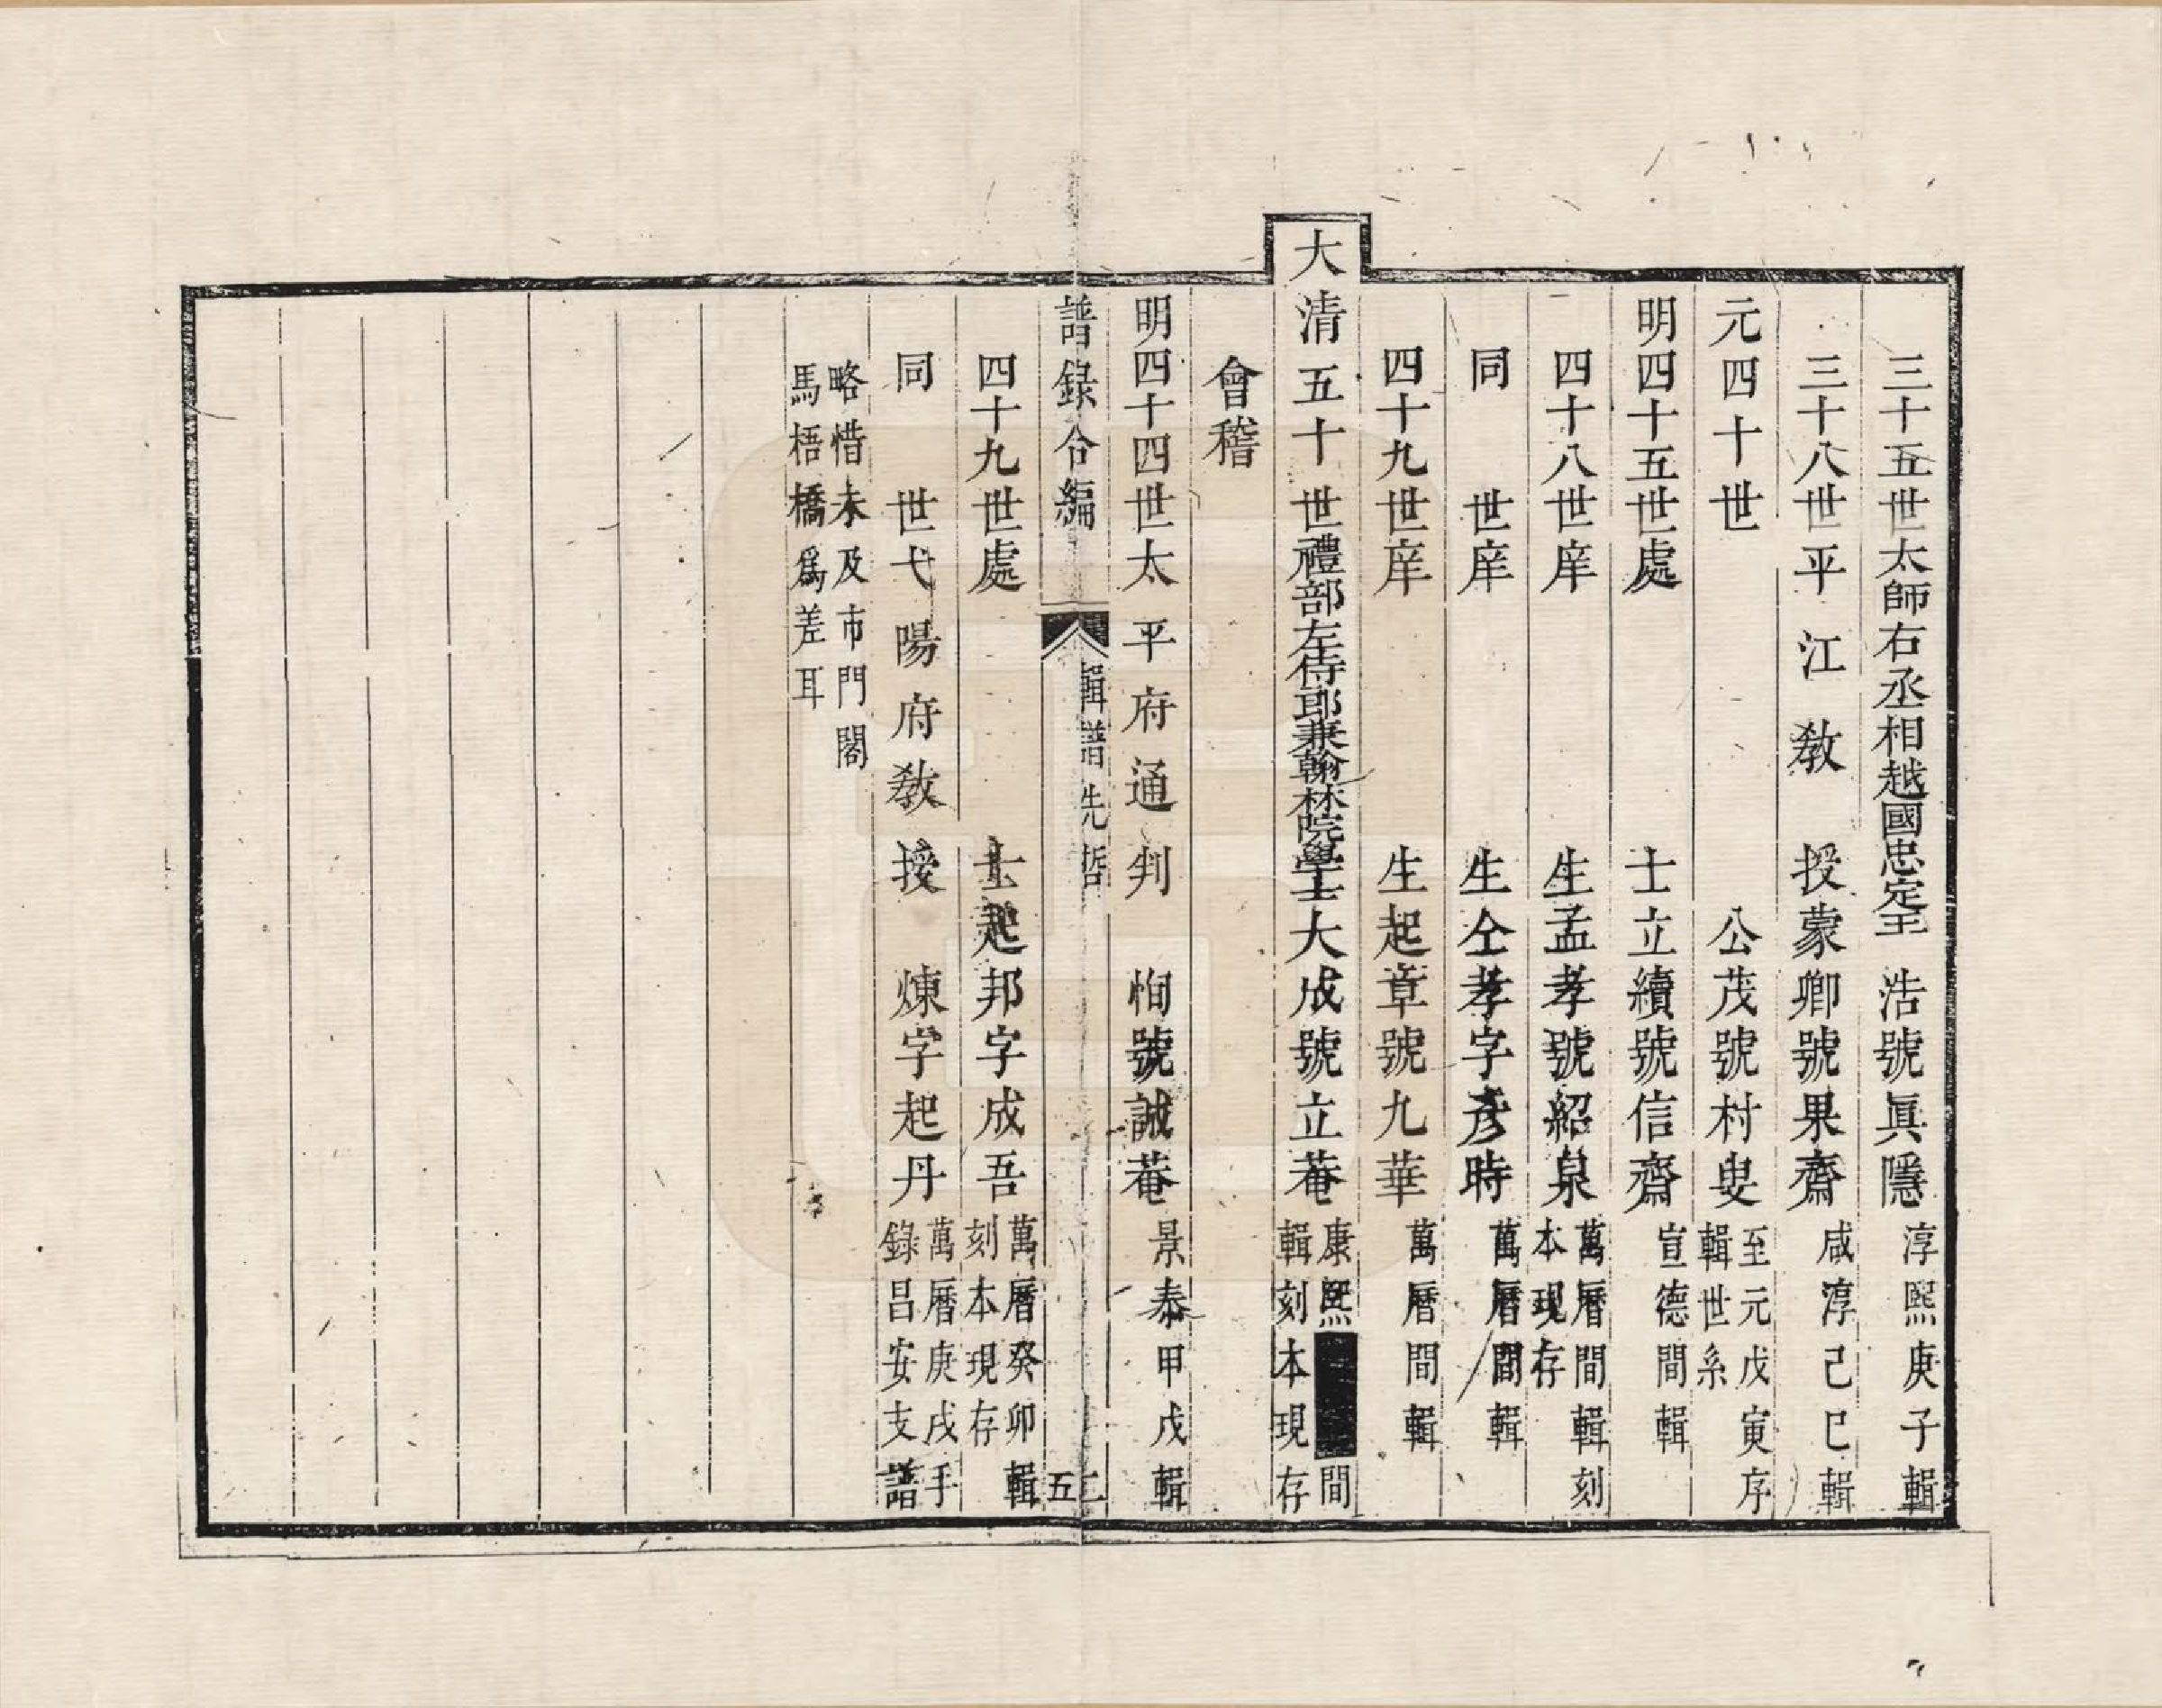 三十五世太師右丞相越國忠定王浩號眞隱淳熙庚子輯
三十八世平江教授蒙卿號果齋咸淳己巳輯
元四十世公茂號村叟至元戊寅序輯世系
明四十五世處士立績號信齋宣德間輯
四十八世庠生孟孝號紹泉萬曆間輯刻本現存
同世庠生仝孝字彥時萬曆間輯
四十九世庠生起章號九華萬曆間輯
大清五十世禮部左侍郎兼翰林院學士大成號立菴康熙間輯刻本現存
會稽
明四十四世太平府通判恂號誠菴景泰甲戌輯
譜錄合編 輯譜先哲 五二
四十九世處士起邦字成吾萬曆癸卯輯刻本現存
同世弋陽府教授煉字起丹萬曆庚戌手錄昌安支譜
略惜未及市門閣
馬梧橋爲差耳